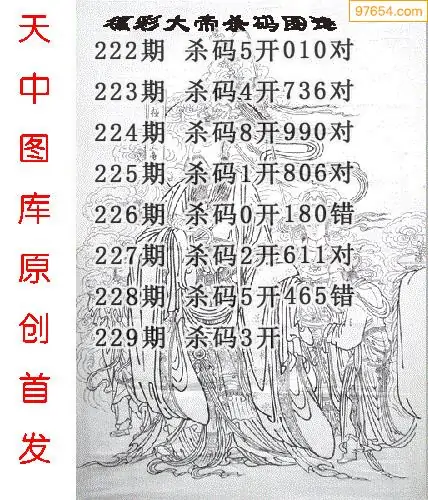 97654.com
福彩大帝杀码图迷
222期 杀码5开010对
223期 杀码4开736对
224期 杀码8开990对
225期 杀码1开806对
226期 杀码0开180错
227期 杀码2开611对
228期 杀码5开465错
229期 杀码3开
天中图库原创首发